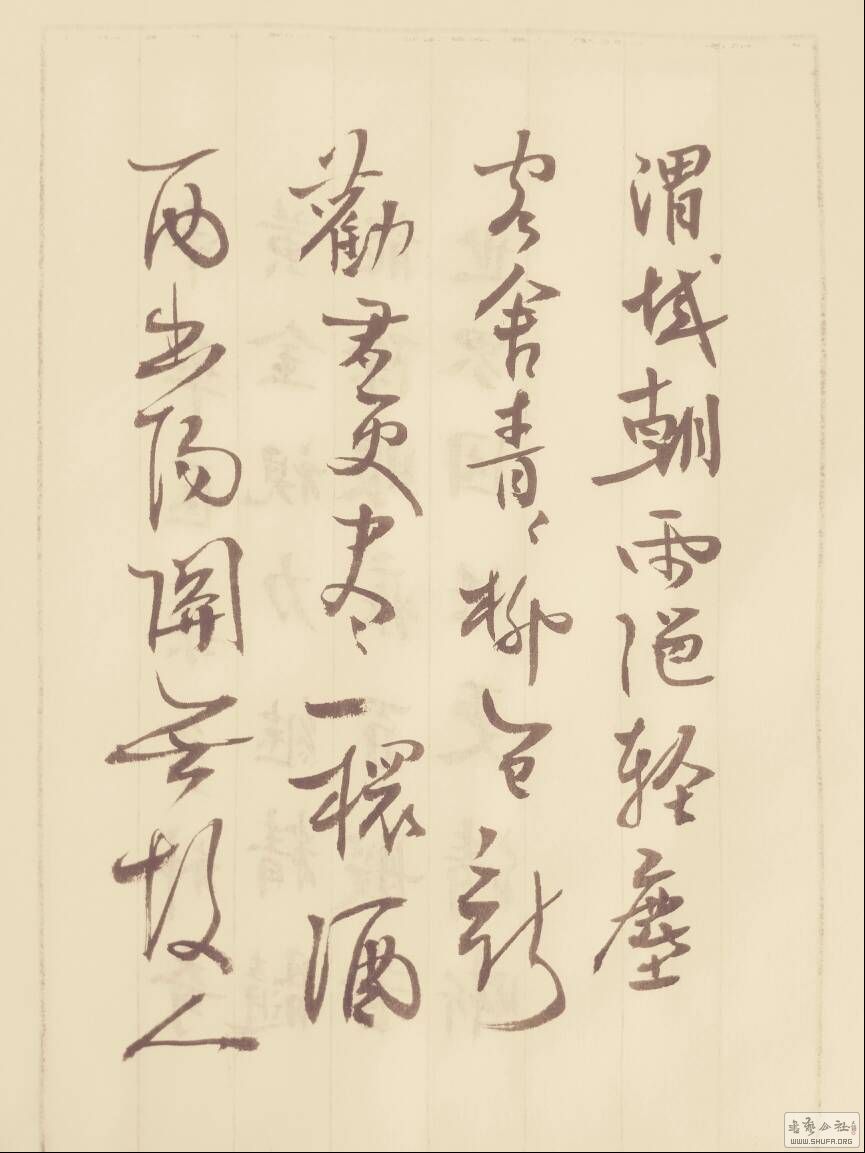 渭城朝雨浥轻塵
客舍青々柳色新
勸君更尽一酒
西出陽關無故人
書藝公社
WWW.SHUFA.ORG